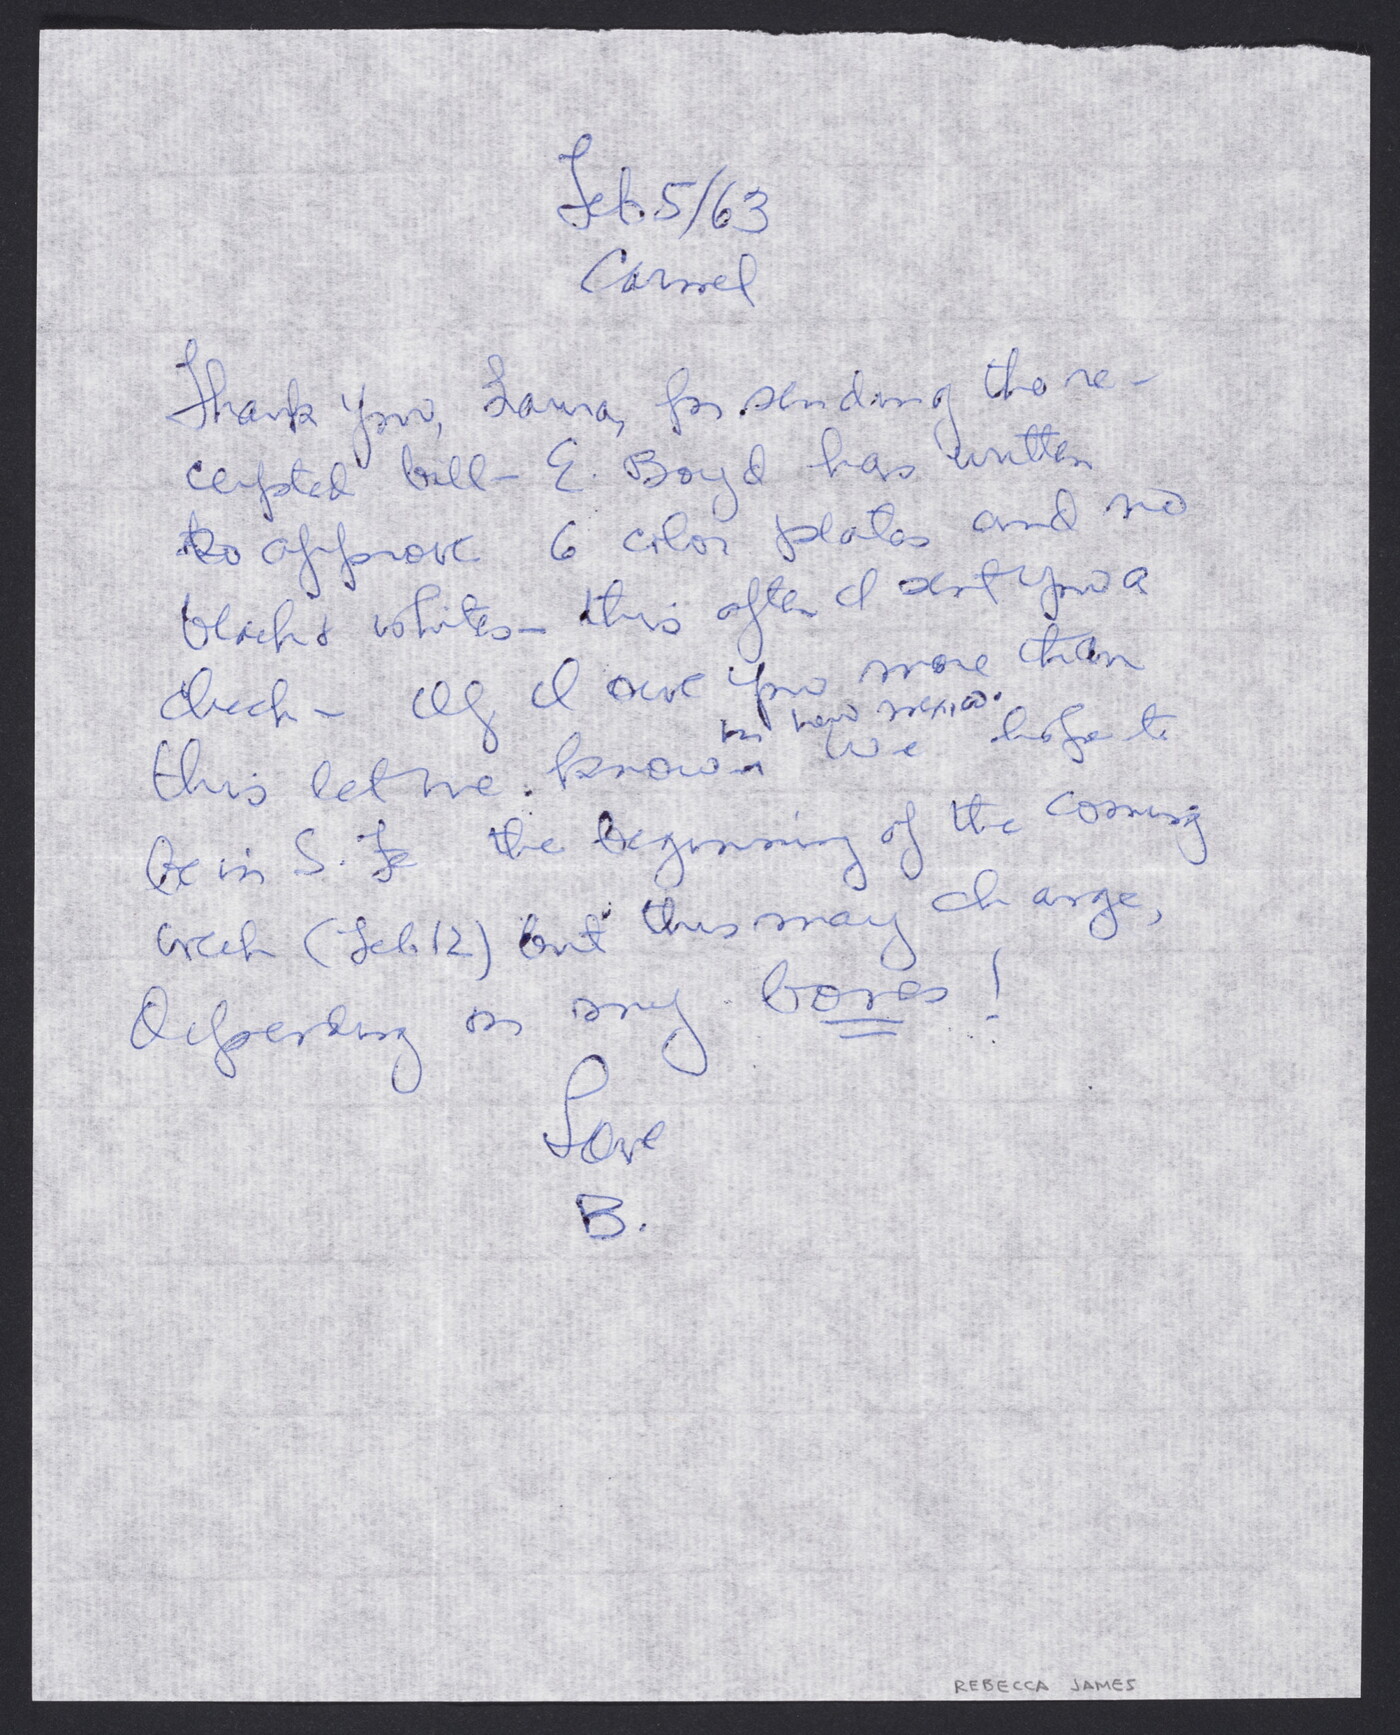 Feb. 5/63
Carmel
Thank you, Laura, for sending the re-
ceipted bill - E. Boyd has written
to approve 6 color plates and no
black & whites - this after I sent you a
check - If I owe you more than
this let me know in New Mexico. We hope to
be in S. Fe the beginning of the coming
week (Feb. 12) but this may change,
depending on my bones!
Love
B.
REBECCA JAMES